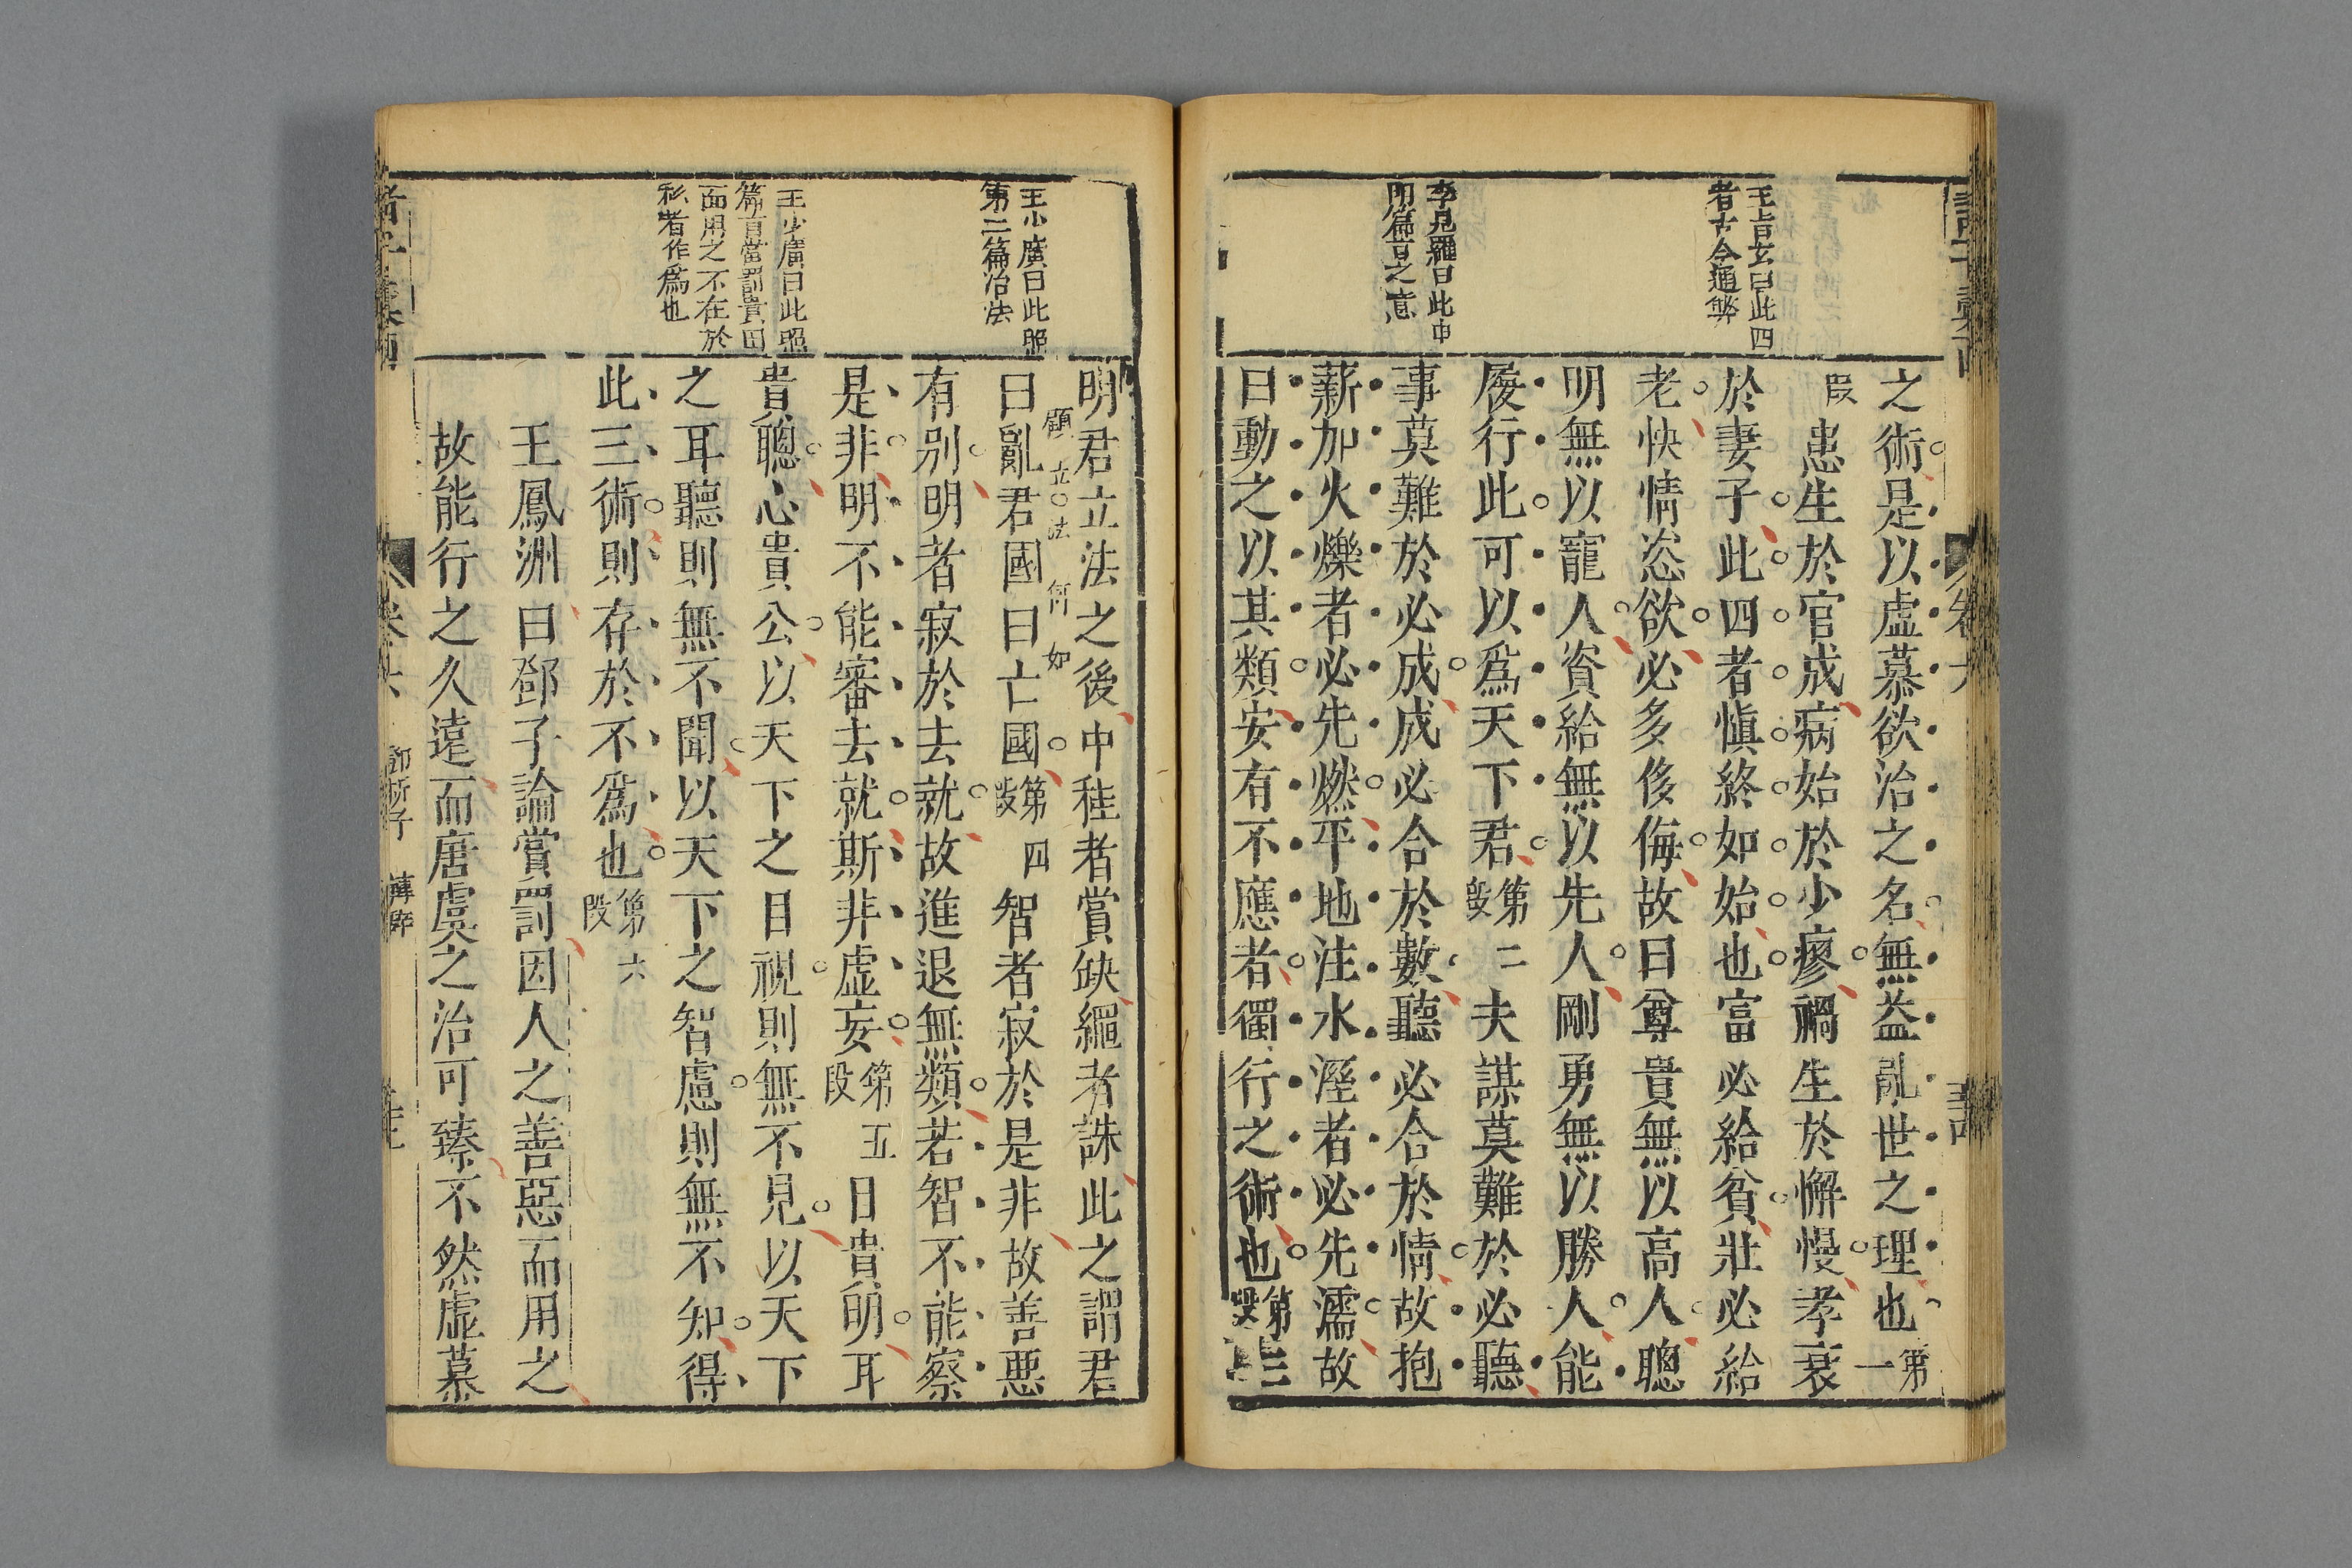 王肯玄曰此四
者古今通弊
李見羅曰此申
明篇首之意
之術是以虛慕欲治之名無益亂世之理也第一
段患生於官成病始於少瘳禍生於懈慢孝衰
於妻子此四者慎終如始也富必給貧壯必給
老快情恣欲必多侈侮故曰尊貴無以高人聰
明無以寵人資給無以先人剛勇無以勝人能
履行此可以爲天下君第二段夫謀莫難於必聽
事莫難於必成成必合於數聽必合於情故抱
薪加火爍者必先燃平地注水溼者必先濡故
曰動之以其類安有不應者獨行之術也第三段
王少廣曰此照
第二篇治法
王少廣曰此照
篇首當罰貴因
面用之不在於
私者作爲也
明君立法之後中程者賞缺繩者誅此之謂君
顧立法何如
曰亂君國曰亡國第四段智者寂於是非故善惡
有別明者寂於去就故進退無類若智不能察
是非明不能審去就斯非虛妄第五段目貴明耳
貴聰心貴公以天下之目視則無不見以天下
之耳聽則無不聞以天下之智慮則無不知得
此三術則存於不爲也第六段
王鳳洲曰鄧子論賞罰因人之善惡而用之
故能行之久遠而唐虞之治可臻不然虛慕
卷六
鄧析子